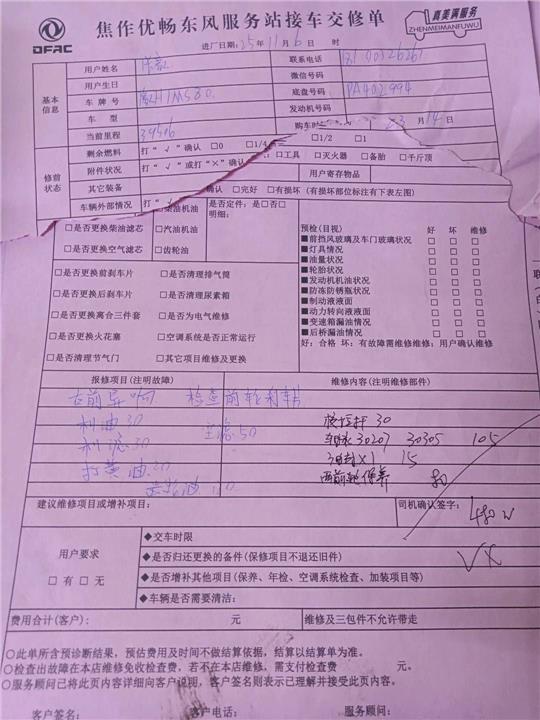 DFAC
焦作优畅东风服务站接车交修单
真美满服务
ZHENMEIMANFUWU
进厂日期：25年11月6日 时
基本信息
用户姓名 联系电话
用户生日 微信号码
车牌号 底盘号码 PA402994
车 型 发动机号码
当前里程 39506 购车时 月14日
修前状态
剩余燃料 打“√”确认 □0 □1/4 □1/2 □1
附件状况 打“√”或打“×”确认 □工具 □灭火器 □备胎 □千斤顶
其它装备 用户寄存物品
车辆外部情况 打“√” 确认 □完好 □有损坏（有损坏部位标注有下表左图）
□柴油机油 是否定件：是□否□
□是否更换柴油滤芯 □汽油机油 明细：
□是否更换空气滤芯 □齿轮油
预检(目视) 好 坏 维修
■前挡风玻璃及车门玻璃状况 □ □ □
■灯具情况 □ □ □
■油量状况 □ □ □
■轮胎状况 □ □ □
■发动机机油状况 □ □ □
■防冻防锈瓶状况 □ □ □
■制动液液面 □ □ □
■动力转向液液面 □ □ □
■变速箱漏油情况 □ □ □
■后桥漏油情况 □ □ □
好：合格 坏：有故障需维修维修：用户确认维修
□是否更换前刹车片 □是否清理排气筒
□是否更换后刹车片 □是否清理尿素箱
□是否更换离合三件套 □是否为电气维修
□是否更换火花塞 □空调系统是否正常运行
□是否清理节气门 □其它项目维修及更换
报修项目(注明故障) 维修内容(注明维修部件)
右前异响 检查前轮刹车片
机油30 30
机滤30 空滤50 30207 30305 105
打黄油30 油封×1 15
保养 80
建议维修项目或增项目： 司机确认签字：
480
用户要求
□有 □无
◆交车时限
◆是否归还更换的备件(保修项目不退还旧件)
◆是否增补其他项目(保养、年检、空调系统检查、加装项目等)
◆车辆是否需要清洁：
费用合计(客户)： 元 维修及三包件不允许带走
○此单所含预诊断结果，预估费用及时间不做结算依据，结算以结算单为准。
○检查出故障在本店维修免收检查费，若不在本店维修、需支付检查费 元。
○服务顾问已将此页内容详细向客户说，客户签名则表示已理解并接受此页内容。
客户签名： 客户电话： 服务顾问：